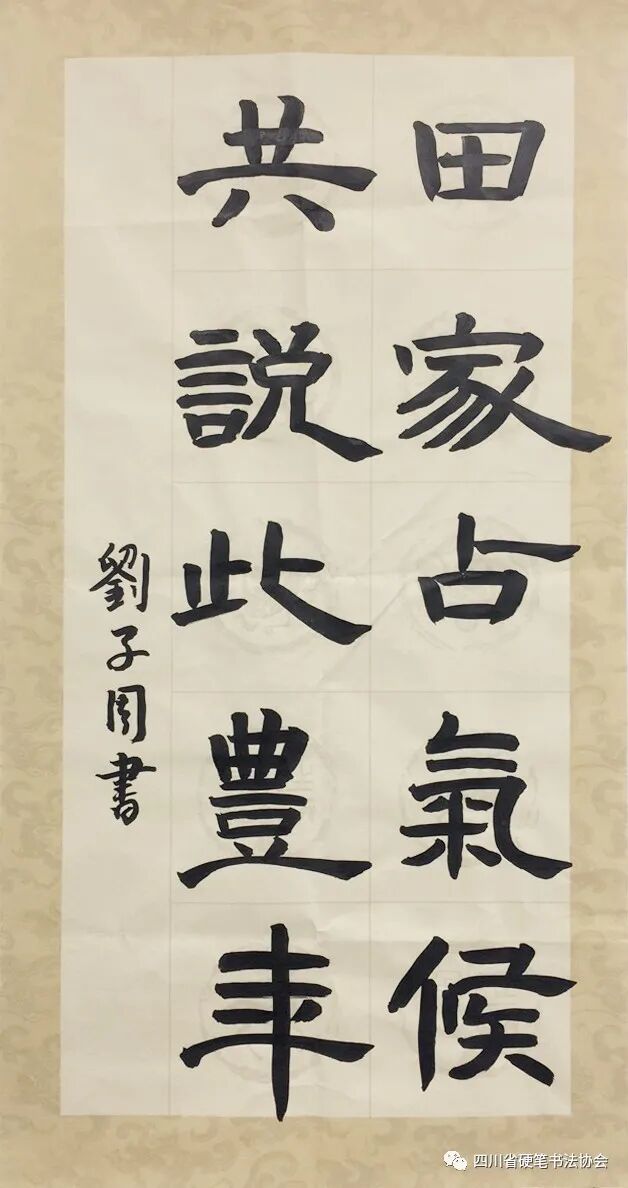 田家占氣候
共説此豐年
劉子周書
四川省硬笔书法协会